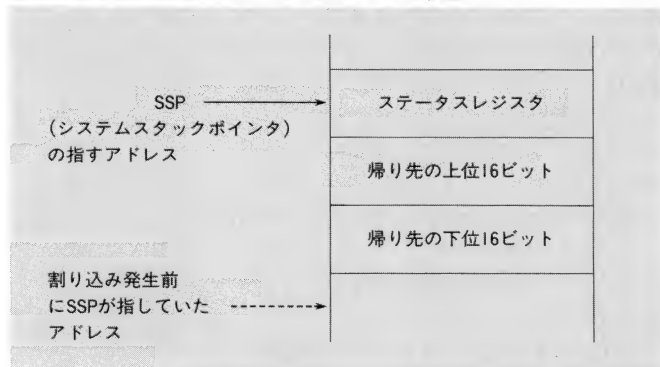 SSP
(システムスタックポインタ)
の指すアドレス
ステータスレジスタ
帰り先の上位16ビット
帰り先の下位16ビット
割り込み発生前
にSSPが指していた
アドレス